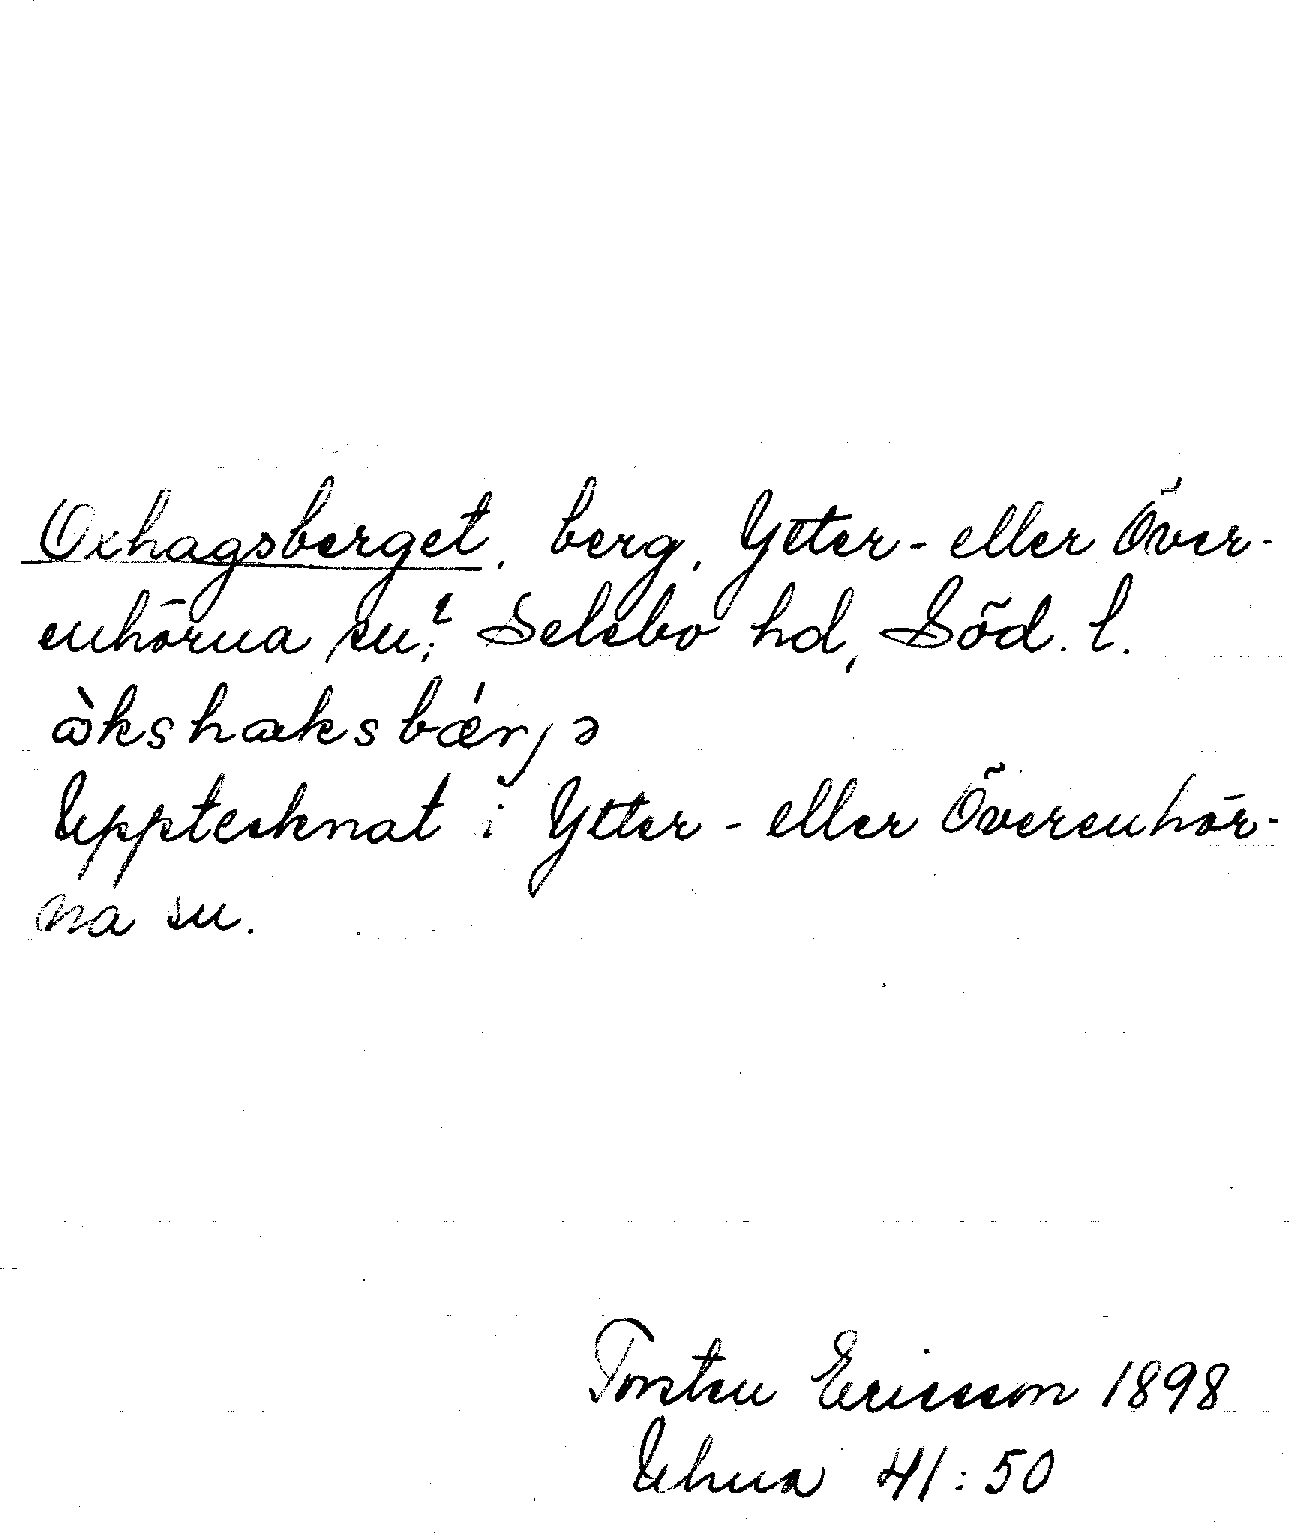 Oxhagsberget, berg, Ytter- eller Över-
enhörna sn? Selebo hd, Söd. l.
ɷ̀kshaksbǽrjə
Upptecknat i Ytter- eller Överenhör-
na sn.
Torsten Ericsson 1898
Uhua 41:50